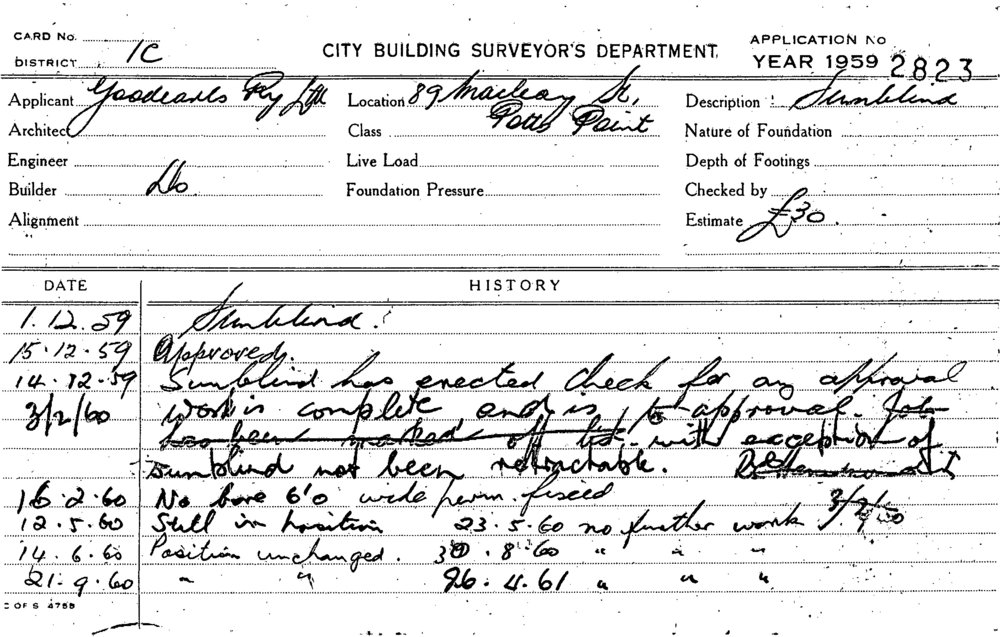 CARD No.
DISTRICT 1C
CITY BUILDING SURVEYOR'S DEPARTMENT.
APPLICATION No
YEAR 1959 2823
Applicant Goodearls Pty Ltd
Location 89 Macleay St,
Potts Point
Description Sunblind
Architect
Class
Nature of Foundation
Engineer
Live Load
Depth of Footings
Builder Do
Foundation Pressure
Checked by
Alignment
Estimate £30.
DATE HISTORY
1.12.59 Sunblind.
15.12.59 Approved.
14.12.59 Sunblind has erected Check for any approval
3/2/60 Work is complete and is to approval. Job
has been marked off list. with exception of
sunblind not been retractable.
16.2.60 No bove 6'0 wide perm. fixed 3/2/60
12.5.60 Still in position 23.5.60 no further work
14.6.60 Position unchanged. 30.8.60 " " "
21.9.60 " " 26.4.61 " " "
C OF S 4755